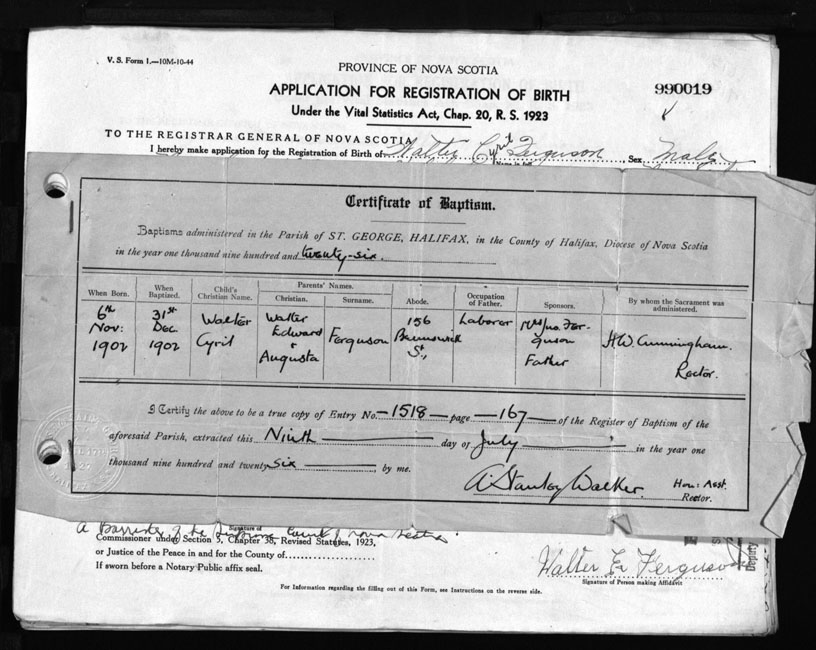 V. S. Form 1.—10M-10-44
PROVINCE OF NOVA SCOTIA
APPLICATION FOR REGISTRATION OF BIRTH
990019
Under the Vital Statistics Act, Chap. 20, R. S. 1923
TO THE REGISTRAR GENERAL OF NOVA SCOTIA
I hereby make application for the Registration of Birth of Walter Cyril Ferguson, Sex Male
Certificate of Baptism.
Baptisms administered in the Parish of ST. GEORGE, HALIFAX, in the County of Halifax, Diocese of Nova Scotia
in the year one thousand nine hundred and twenty-six.
When Born. When Baptized. Child's Christian Name. Parents' Names. Christian. Surname. Abode. Occupation of Father. Sponsors. By whom the Sacrament was administered.
6th Nov: 1902 31st Dec 1902 Walter Cyril Walter Edward + Augusta Ferguson 156 Brunswick St., Laborer Mrs Jno. Ferguson Father H.W. Cunningham. Rector.
I Certify the above to be a true copy of Entry No. 1518 page 167 of the Register of Baptism of the
aforesaid Parish, extracted this Ninth day of July in the year one
thousand nine hundred and twenty six, by me.
A. Stanley Walker. Hon: Asst. Rector.
A Barrister of the Supreme Court of Nova Scotia
Signature of
Commissioner under Section 5, Chapter 38, Revised Statutes, 1923,
or Justice of the Peace in and for the County of
If sworn before a Notary Public affix seal.
Walter E. Ferguson
Signature of Person making Affidavit
Deputy
For Information regarding the filling out of this Form, see Instructions on the reverse side.